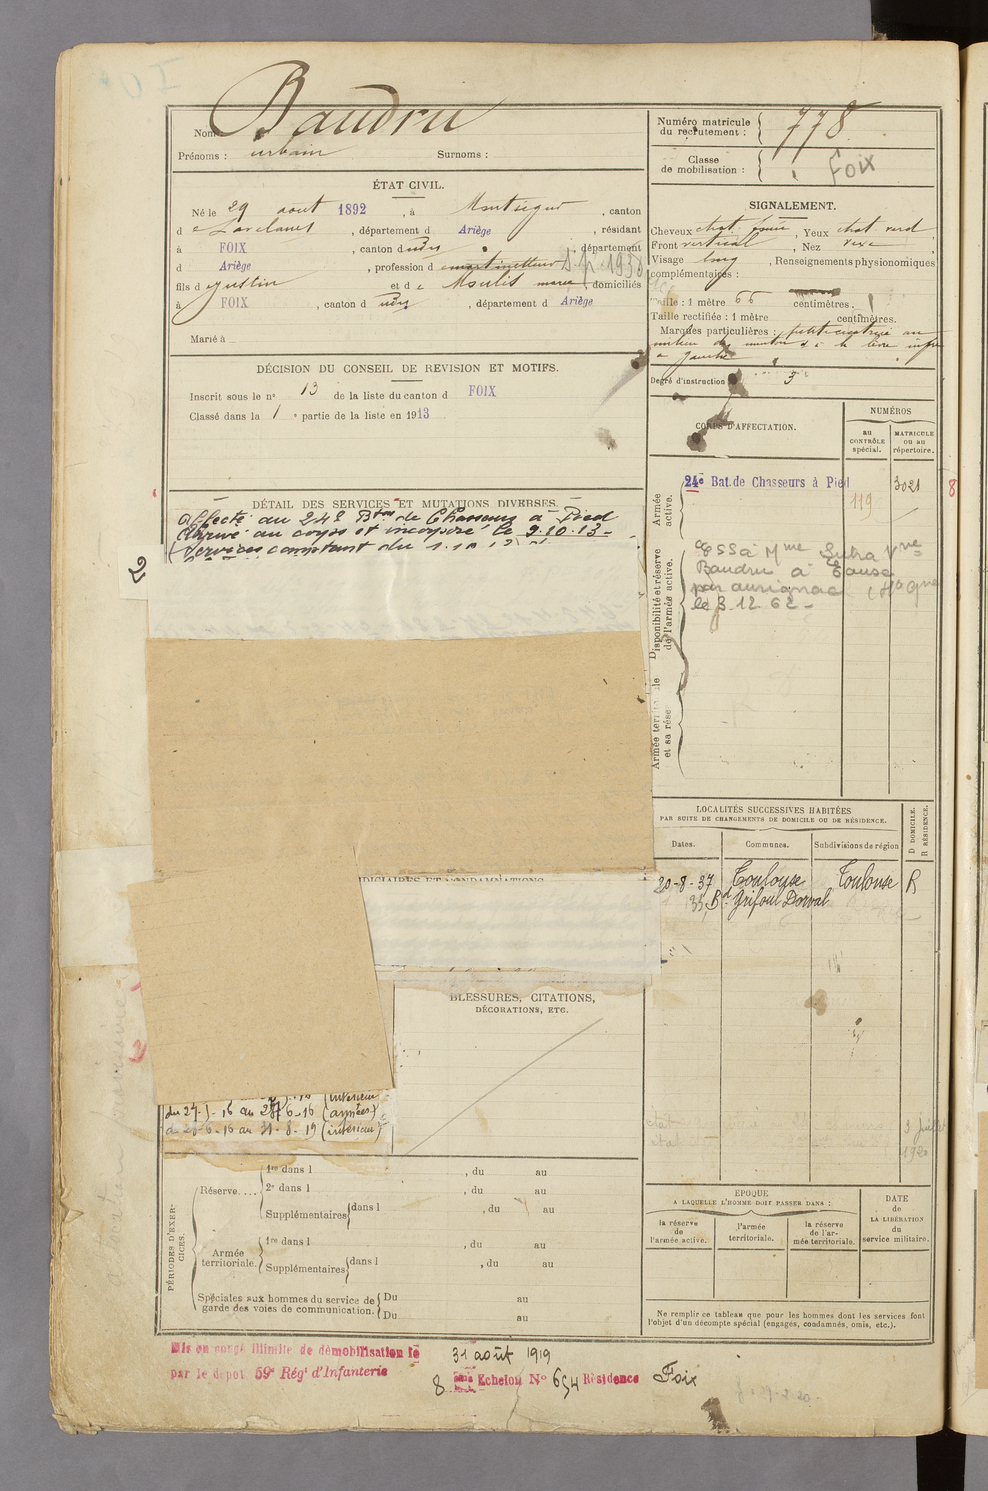 Nom Baudru
Prénoms : urbain Surnoms :
ÉTAT CIVIL.
Né le 29 aout 1892, à Montségur, canton
d e Lavelanet, département d Ariège, résidant
à FOIX, canton d udes, département
d Ariège, profession d
fils d e Justin et d e Moulis marie, domiciliés
à FOIX, canton d udes, département d Ariège
Marié à
DÉCISION DU CONSEIL DE REVISION ET MOTIFS.
Inscrit sous le n° 13 de la liste du canton d FOIX
Classé dans la 1e partie de la liste en 1913
DÉTAIL DES SERVICES ET MUTATIONS DIVERSES.
Affecté au 24e Bton de Chasseurs à Pied
Arrivé au corps et incorporé le 9.10.13-
Services comptant du
JUDICIAIRES ET CONDAMNATIONS
BLESSURES, CITATIONS,
DÉCORATIONS, ETC.
(intérieur
du 27-5-16 au 28-6-16 (armées)
du 29-6-16 au 31-8-19 (intérieur)
PÉRIODES D'EXERCICES.
Réserve.... 1re dans l , du au
2e dans l , du au
Supplémentaires dans l , du au
Armée territoriale. 1re dans l , du au
Supplémentaires dans l , du au
Spéciales aux hommes du service de garde des voies de communication. Du au
Du au
Mis en congé illimité de démobilisation le 31 août 1919
par le dépôt 59e Régt d'Infanterie 8 ème Echelon N° 654 Résidence Foix
Numéro matricule
du recrutement : 778
Classe
de mobilisation : Foix
SIGNALEMENT.
Cheveux chat. foncé, Yeux chat. verd
Front vertical, Nez
Visage long, Renseignements physionomiques
complémentaires :
Taille : 1 mètre 66 centimètres.
Taille rectifiée : 1 mètre centimètres.
Marques particulières : petite cicatrice au
milieu du menton et à la lèvre infre
a gauche
Degré d'instruction : 3
CORPS D'AFFECTATION.
NUMÉROS
au
CONTRÔLE
spécial.
MATRICULE
ou au
répertoire.
Armée active.
24e Bat. de Chasseurs à Pied 119 3021
Disponibilité et réserve de l'armée active.
ESS à Mme Sutra Vve
Baudru à Eause
par aurignac (Hte Gne
le 3.12.62-
Armée territoriale et sa réserve
LOCALITÉS SUCCESSIVES HABITÉES
PAR SUITE DE CHANGEMENTS DE DOMICILE OU DE RÉSIDENCE.
Dates. Communes. Subdivisions de région
D DOMICILE.
R RÉSIDENCE.
20-8-37 Toulouse Toulouse R
35, Bd Grifoul Dorval
EPOQUE
A LAQUELLE L'HOMME DOIT PASSER DANS :
la réserve
de
l'armée active.
l'armée
territoriale.
la réserve
de l'ar-
mée territoriale.
DATE
de
LA LIBÉRATION
du
service militaire.
Ne remplir ce tableau que pour les hommes dont les services font
l'objet d'un décompte spécial (engagés, condamnés, omis, etc.).